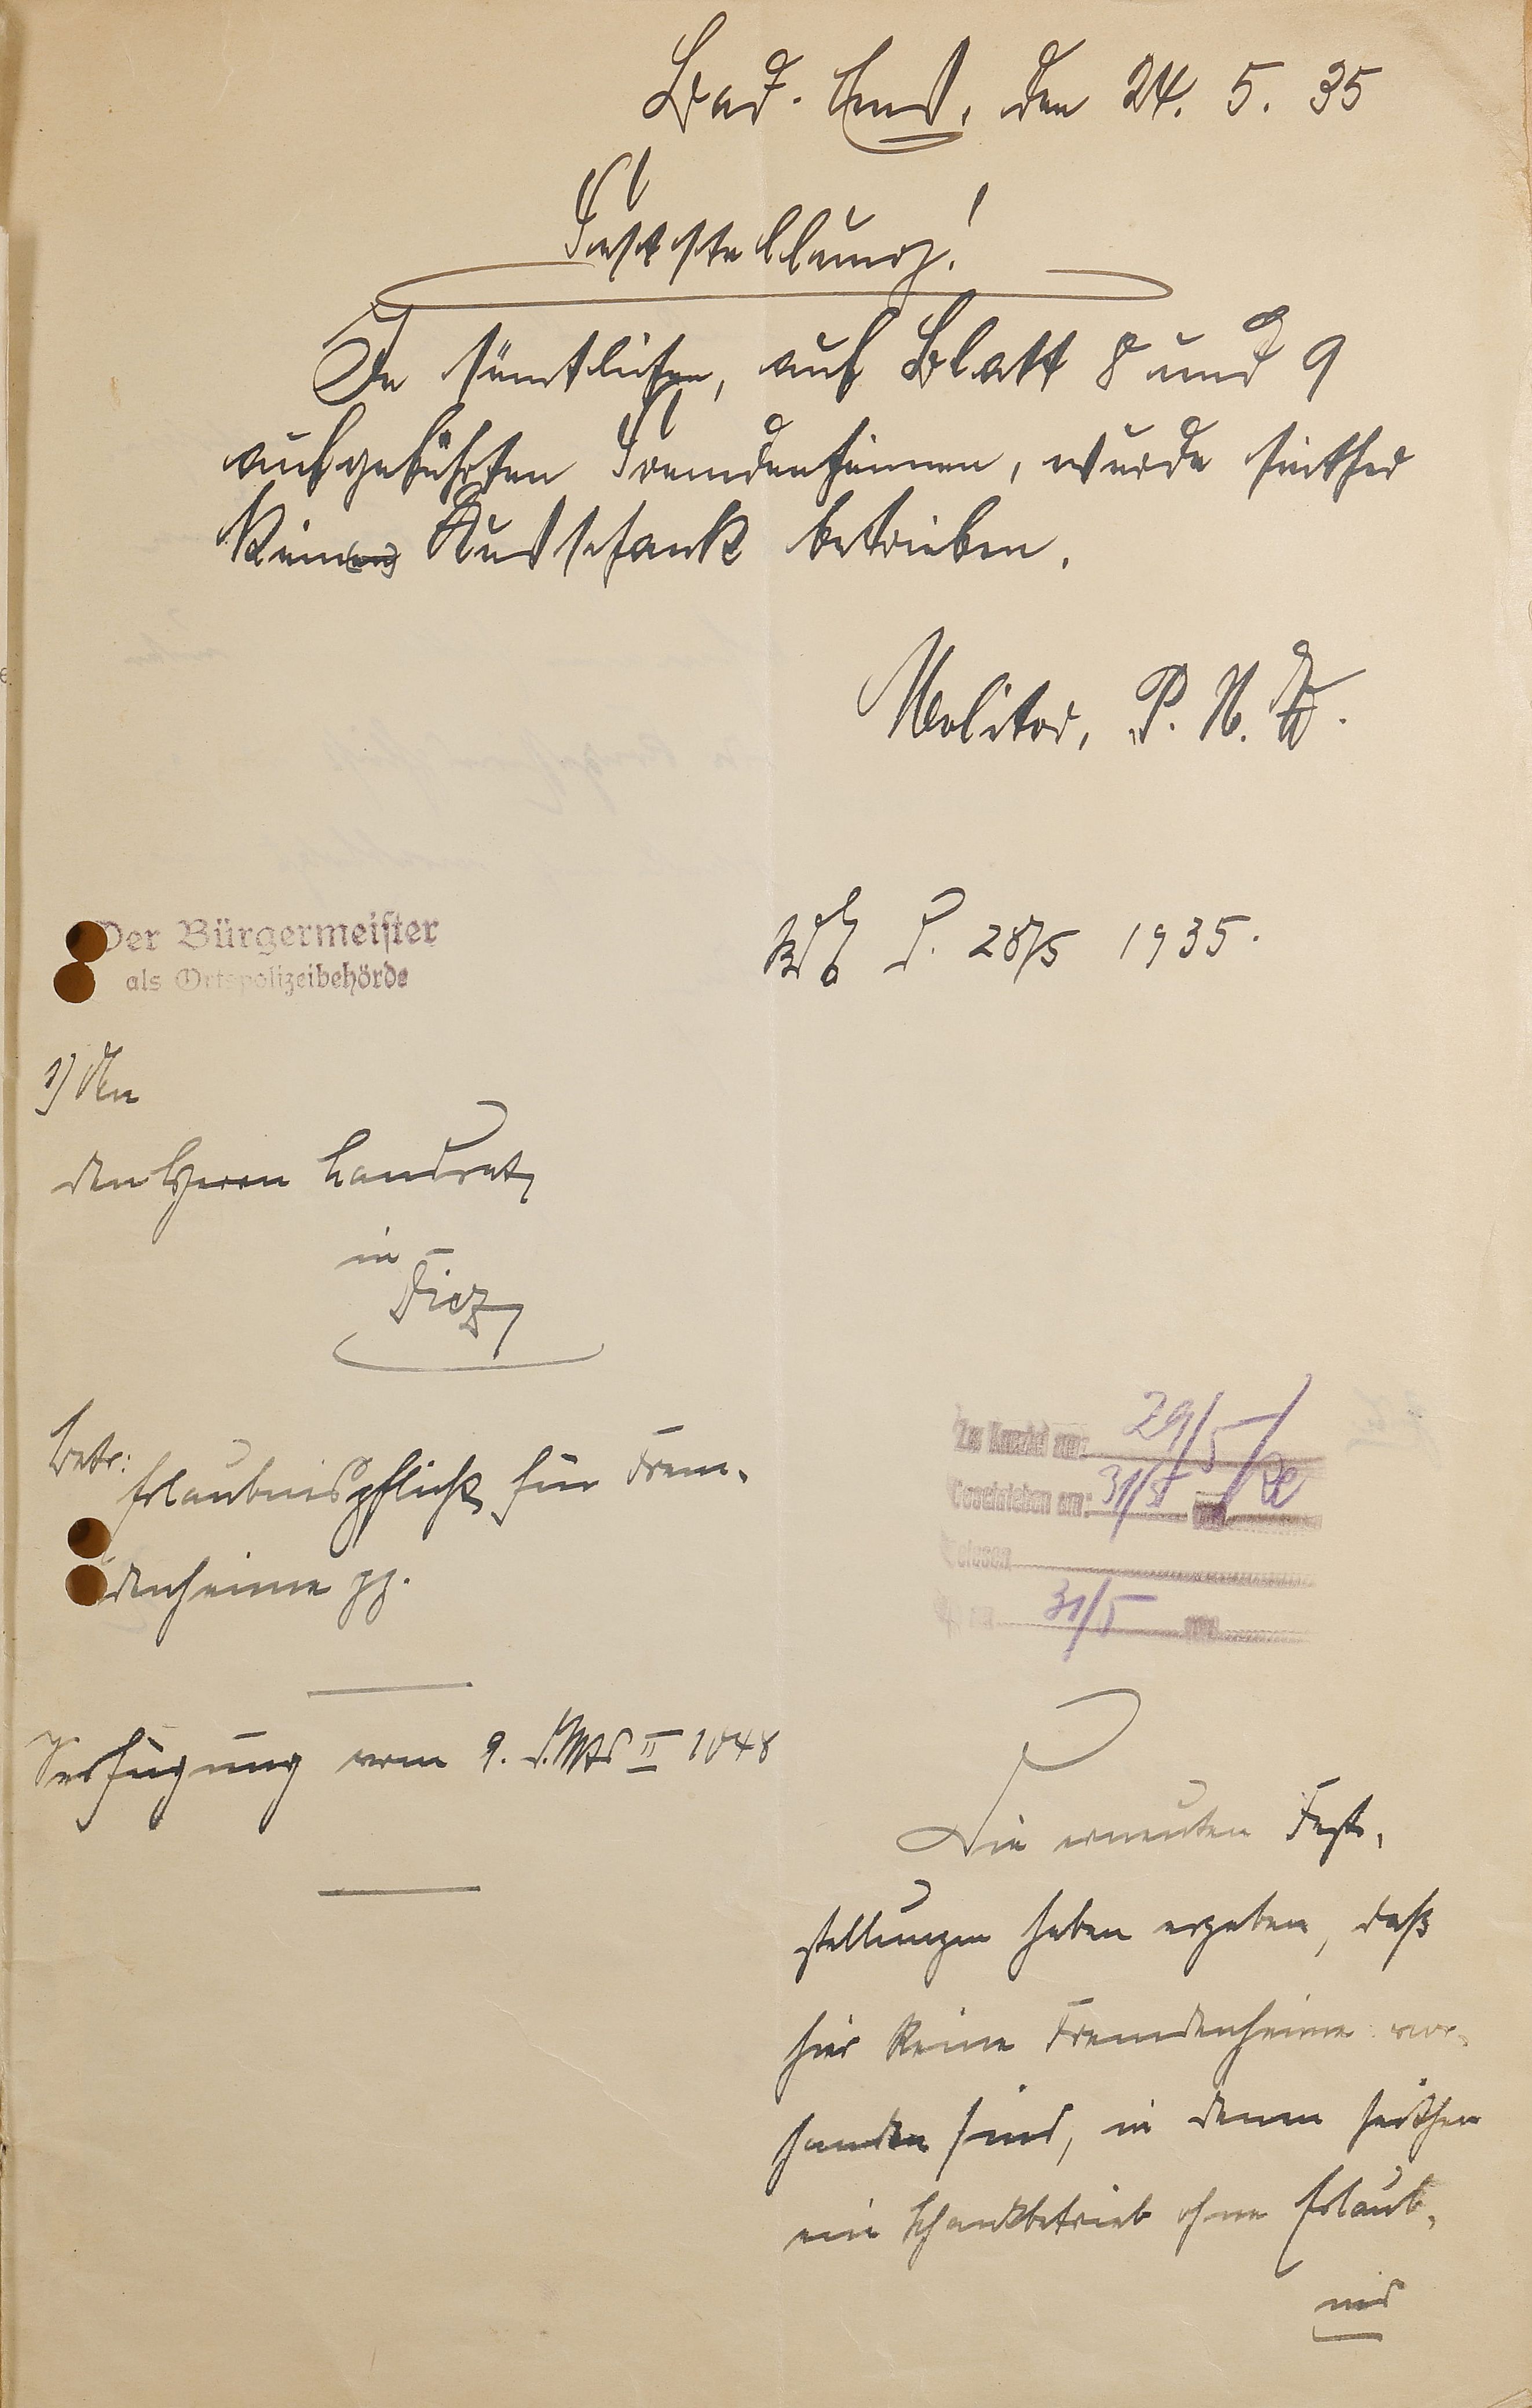 Bad-Ems, den 24. 5. 35
Feststellung!
In sämtlichen, auf Blatt 8 und 9
aufgeführten Fremdenheimen, wurde seither
kein Ausschank betrieben.
Molitor, P. H. W.
Der Bürgermeister
als Ortspolizeibehörde
d. 28/5 1935.
1) An
den Herrn Landrat
in
Diez
Betr:
Erlaubnispflicht für Frem-
denheime pp.
Zur Kanzlei am: 29/5 Re
Geschrieben am: 31/5
Gelesen
31/5
Verfügung vom 9. d. Mts II 1048
Die erneuten Fest-
stellungen haben ergeben, daß
hier keine Fremdenheime vor-
handen sind, in denen seither
ein Schankbetrieb ohne Erlaub-
nis